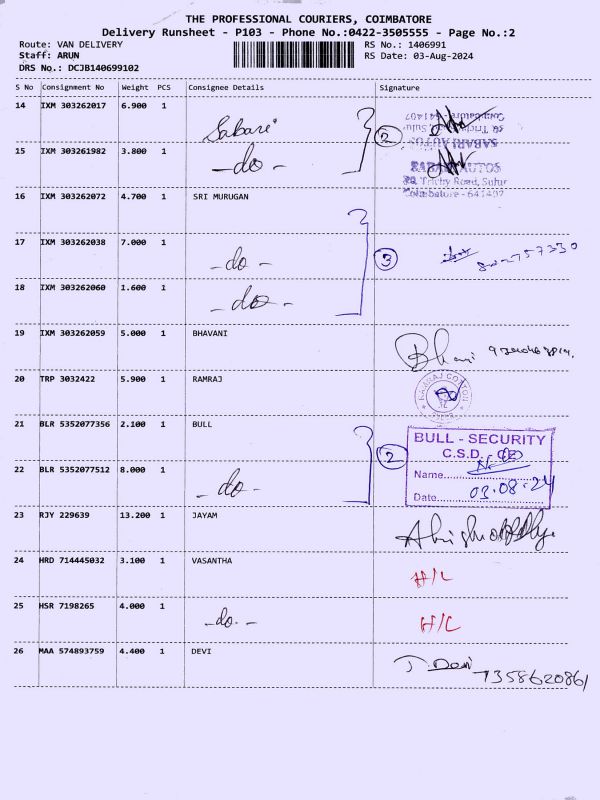 THE PROFESSIONAL COURIERS, COIMBATORE
Delivery Runsheet - P103 - Phone No.:0422-3505555 - Page No.:2
Route: VAN DELIVERY
RS No.: 1406991
Staff: ARUN
RS Date: 03-Aug-2024
DRS No.: DCJB140699102
S No Consignment No Weight PCS Consignee Details Signature
14 IXM 303262017 6.900 1 Sabari
2
SABARI AUTOS
15 IXM 303261982 3.800 1 -do-
SABARI AUTOS
Trichy Road, Sulur
Coimbatore - 641402
16 IXM 303262072 4.700 1 SRI MURUGAN
17 IXM 303262038 7.000 1 -do-
3
18 IXM 303262060 1.600 1 -do-
19 IXM 303262059 5.000 1 BHAVANI
20 TRP 3032422 5.900 1 RAMRAJ
RAMRAJ COTTON
21 BLR 5352077356 2.100 1 BULL
2
BULL - SECURITY
C.S.D.
22 BLR 5352077512 8.000 1 -do-
Name
Date 03.08.24
23 RJY 229639 13.200 1 JAYAM
24 HRD 714445032 3.100 1 VASANTHA
H/L
25 HSR 7198265 4.000 1 -do-
H/L
26 MAA 574893759 4.400 1 DEVI
T. Devi
7358620861